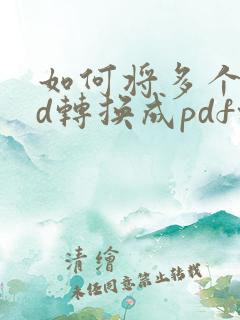 如何将多个
d轉換成pdf
清繪
未经同意禁止转载